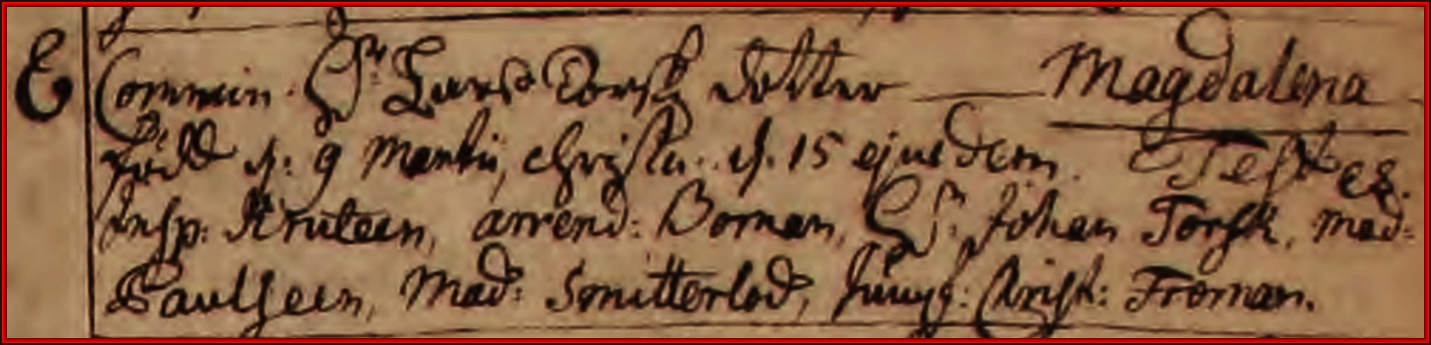 E Commin. Hr Lars Torsk dotter — Magdalena
född d: 9 Martii, christn. d. 15 ejusdem. Testes.
Insp: Kruteen, arrend: Boman, Hr: Johan Torsk, mad:
Paulseen, Mad: Smitterlod, Jungf: Christ: Froman.